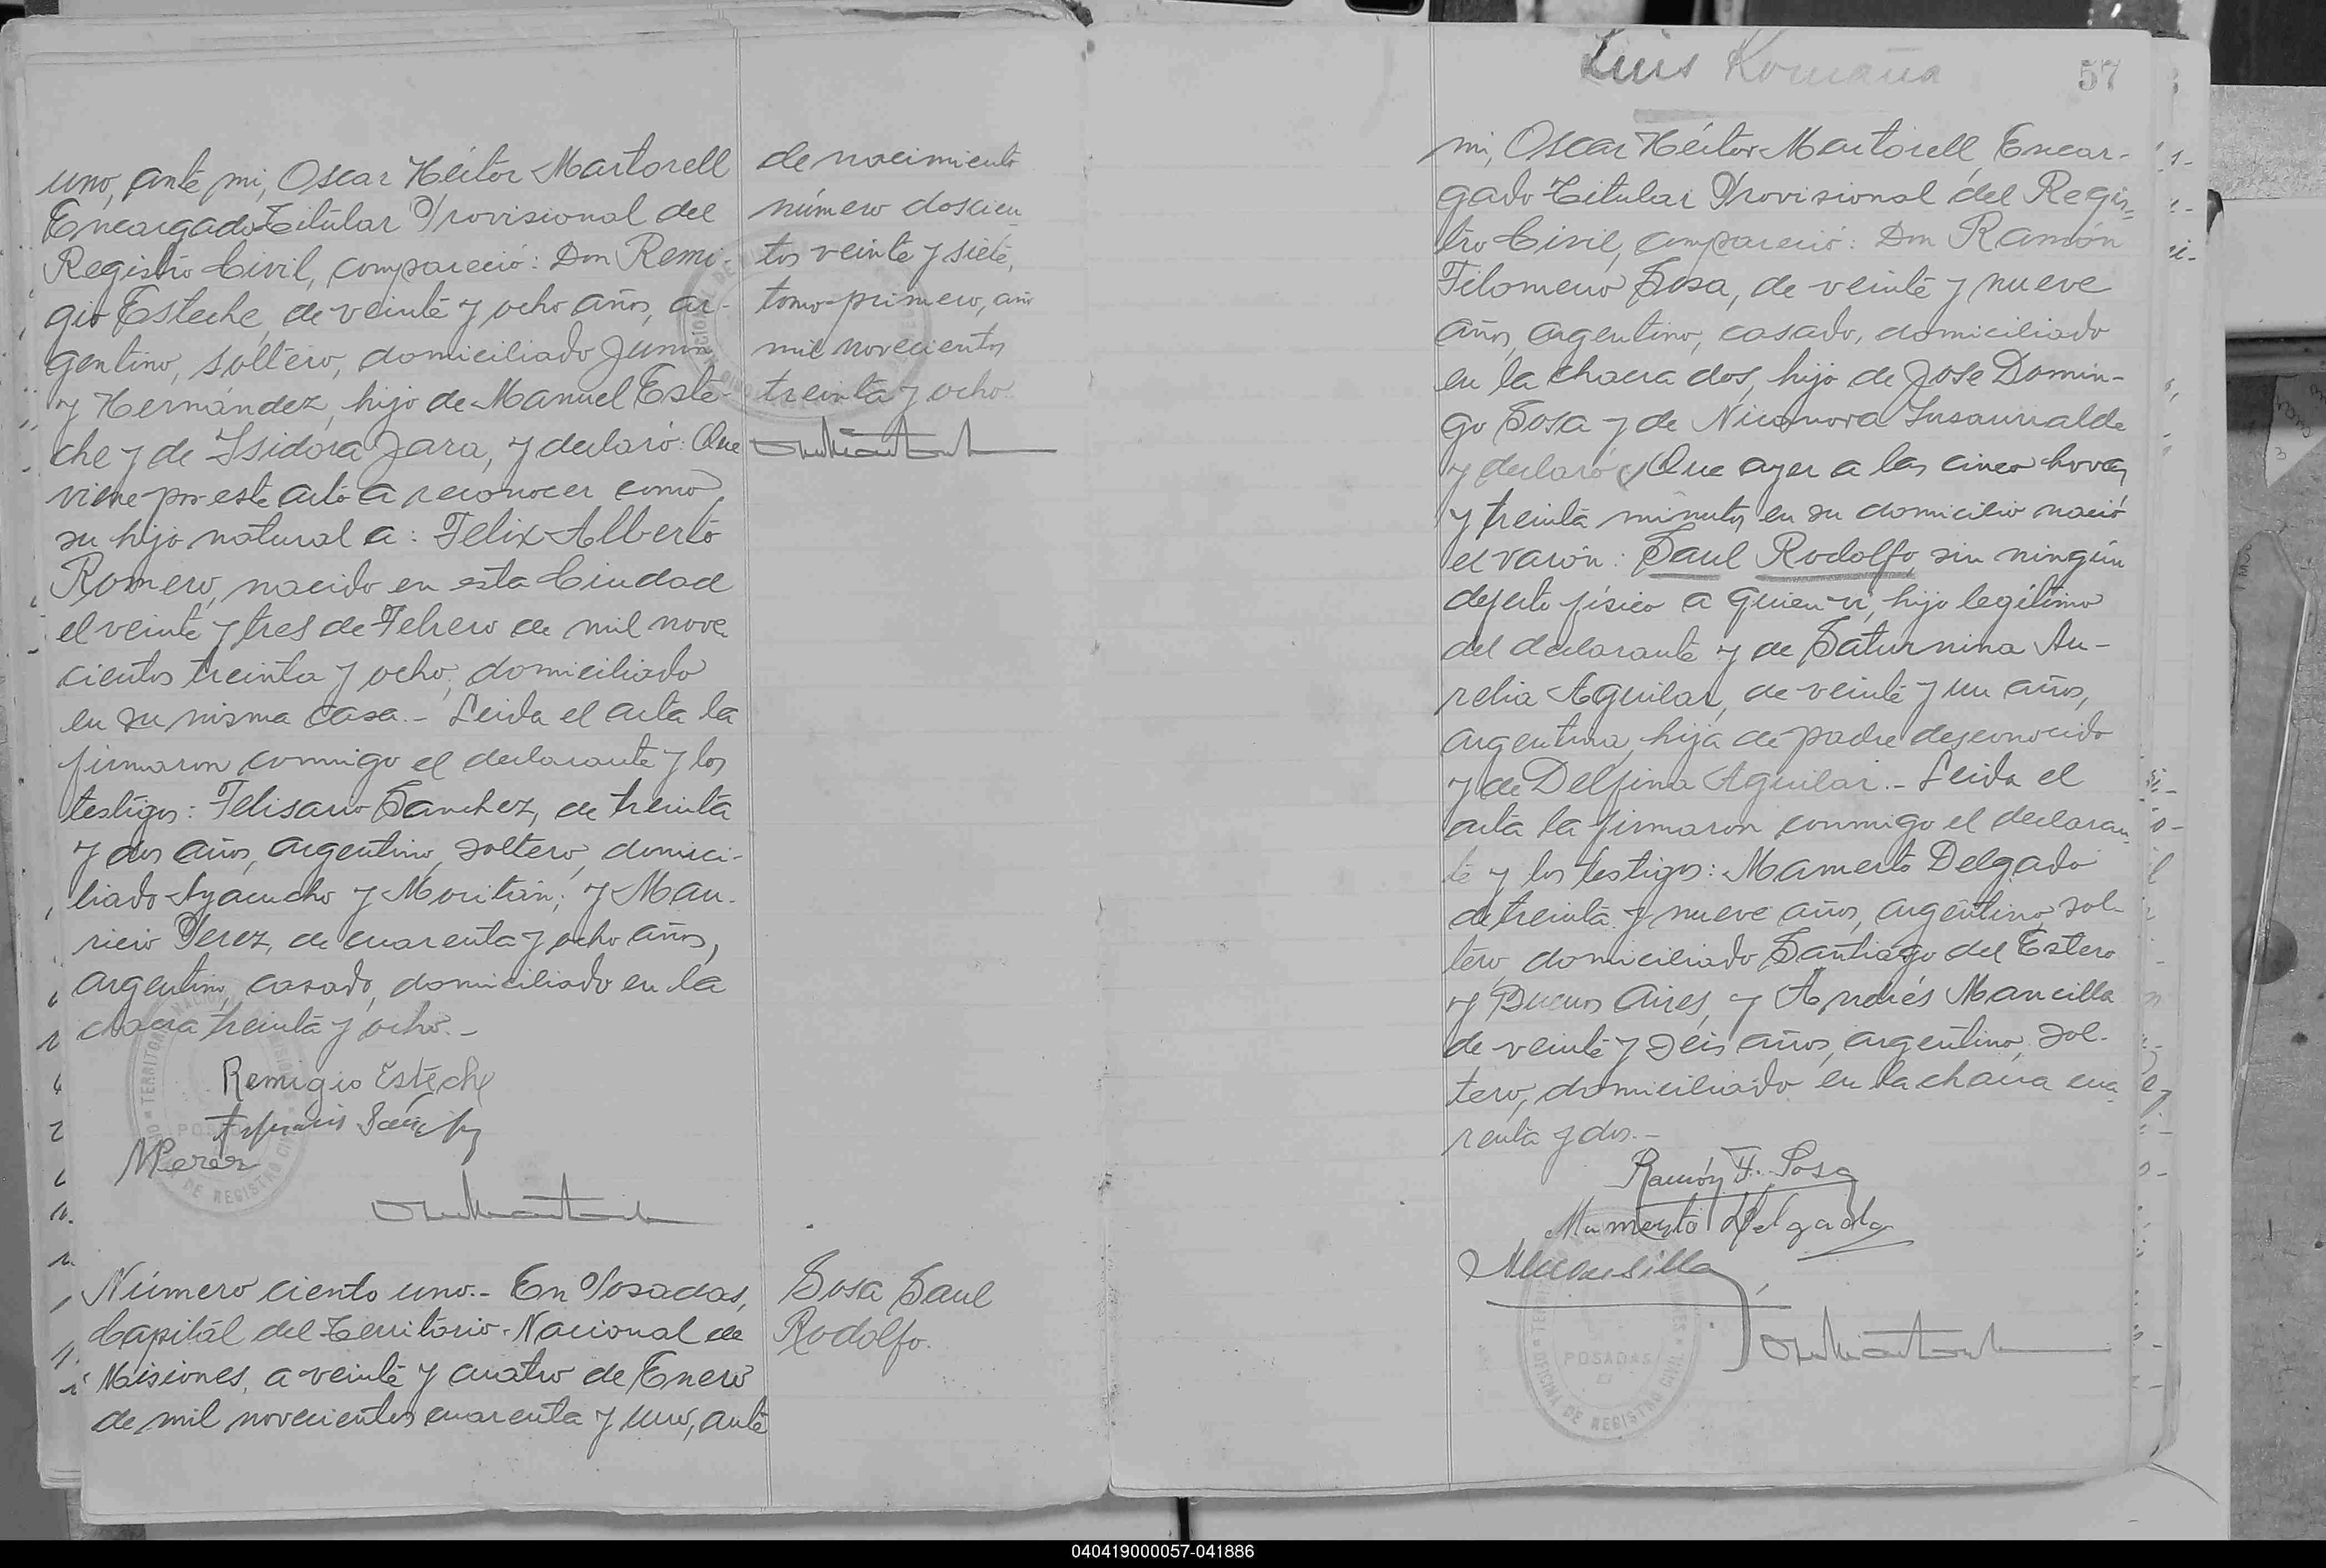 uno, ante mi, Oscar Héctor Martorell
Encargado Titular Provisional del
Registro Civil, compareció: Don Remi-
gio Esteche, de veinte y ocho años, ar-
gentino, soltero, domiciliado Junin
y Hernández, hijo de Manuel Este-
che y de Isidora Jara, y declaró: Que
viene por este acto a reconocer como
su hijo natural a: Felix Alberto
Romero, nacido en esta Ciudad
el veinte y tres de Febrero de mil nove
cientos treinta y ocho, domiciliado
en su misma casa.- Leida el acta la
firmaron conmigo el declarante y los
testigos: Felisario Sanchez, de treinta
y dos años, argentino, soltero, domici-
liado Ayacucho y Moritán; y Mau-
ricio Perez, de cuarenta y ocho años,
argentino, casado, domiciliado en la
chacra treinta y ocho.-
Remigio Esteche
MPerez
TERRITORIO NACIONAL MISIONES
POSADAS
OFICINA DE REGISTRO CIVIL
de nacimiento
número doscien
tos veinte y siete,
tomo primero, año
mil novecientos
treinta y ocho.
Número ciento uno.- En Posadas,
Capital del Territorio Nacional de
Misiones, a veinte y cuatro de Enero
de mil novecientos cuarenta y uno, ante
Sosa Saul
Rodolfo.
Luis Romaña
57
mi, Oscar Héctor Martorell, Encar-
gado Titular Provisional del Regis-
tro Civil, compareció: Don Ramón
Filomeno Sosa, de veinte y nueve
años, argentino, casado, domiciliado
en la chacra dos, hijo de José Domin-
go Sosa y de Nicanora Insaurralde
y declaró: Que ayer a las cinco horas
y treinta minutos en su domicilio nació
el varón: Saul Rodolfo, sin ningún
defecto físico a quien ví, hijo legítimo
del declarante y de Saturnina Au-
relia Aguilar, de veinte y un años,
argentina, hija de padre desconocido
y de Delfina Aguilar.- Leida el
acta la firmaron conmigo el declaran
te y los testigos: Mamerto Delgado
de treinta y nueve años, argentino, sol-
tero, domiciliado Santiago del Estero
y Buenos Aires, y Andrés Mancilla
de veinte y seis años, argentino, sol-
tero, domiciliado en la chacra cua
renta y dos.-
Ramón F. Sosa
Mamerto Delgado
AMansilla
TERRITORIO MISIONES
POSADAS
OFICINA DE REGISTRO CIVIL
040419000057-041886